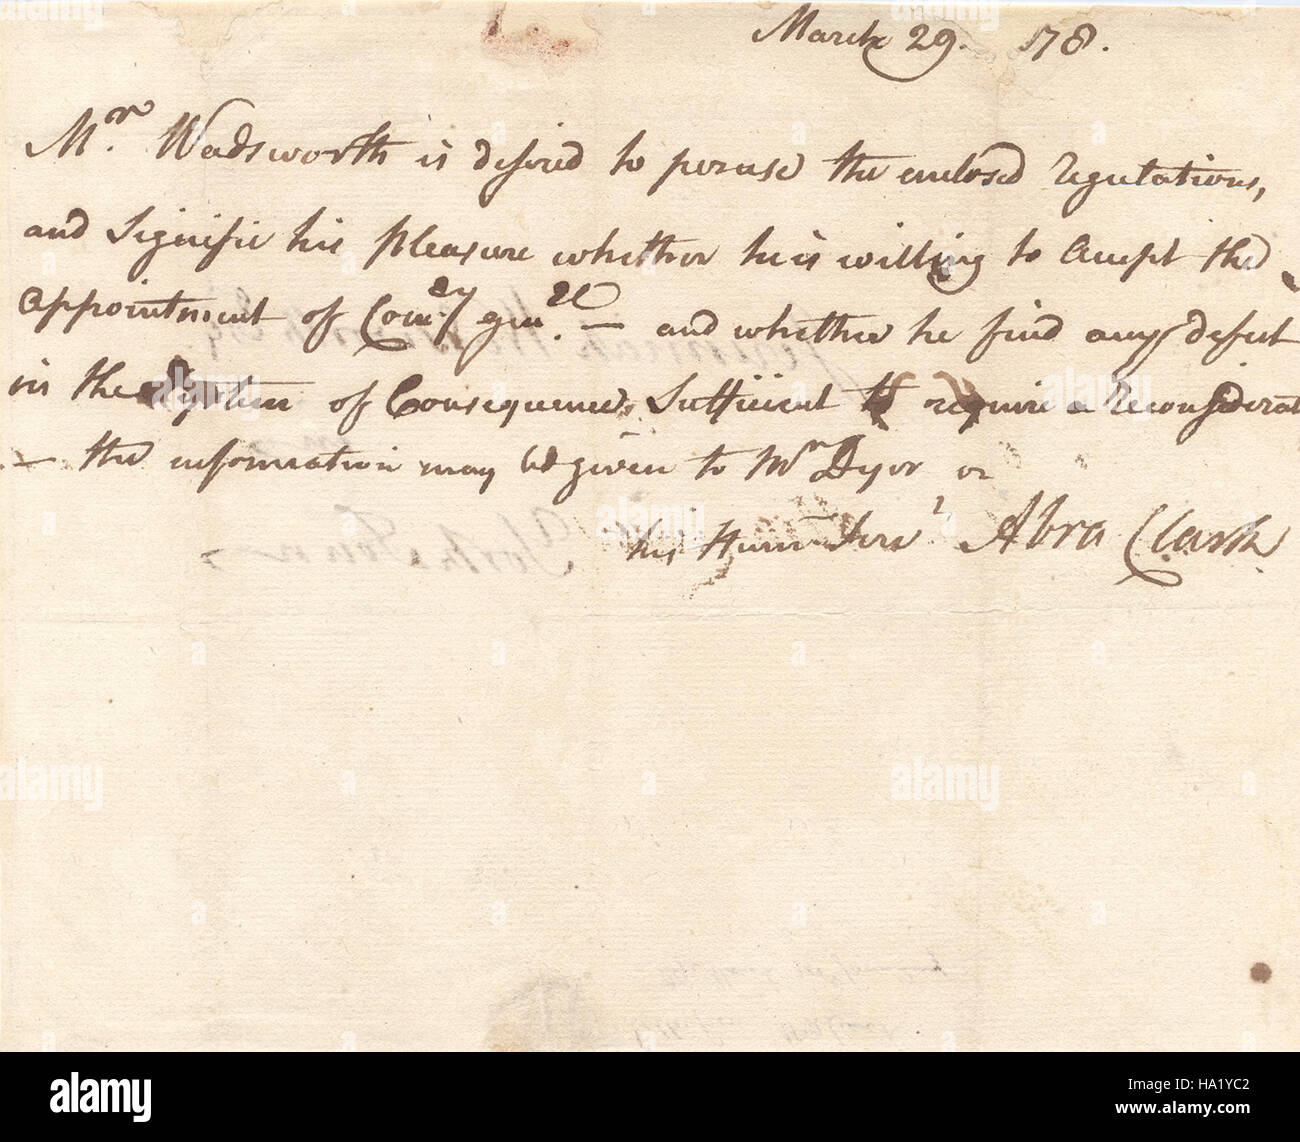 March 29. 178.
Mr. Wadsworth is desired to peruse the enclosed regulations,
and Signifie his pleasure whether he is willing to Accept the
appointment of Comsy genll — and whether he find any defect
in the System of Consequence Sufficient to require a Reconsiderat
— the information may be given to Mr Dyer or
his Hum Serv Abra Clark
alamy
Image ID: HA1YC2
www.alamy.com